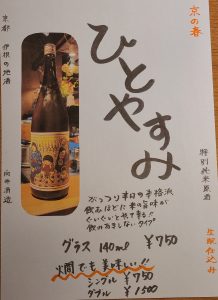 京の春
特別純米原酒
生酛仕込み
ひとやすみ
京都 伊根の地酒
向井酒造
がっつり辛口の本格派
飲むほどに米の旨味が
ぐいぐいとやって来る!!
飲みあきしないタイプ
グラス 140ml ¥750
燗でも美味しい!!
シングル ¥750
ダブル ¥1500